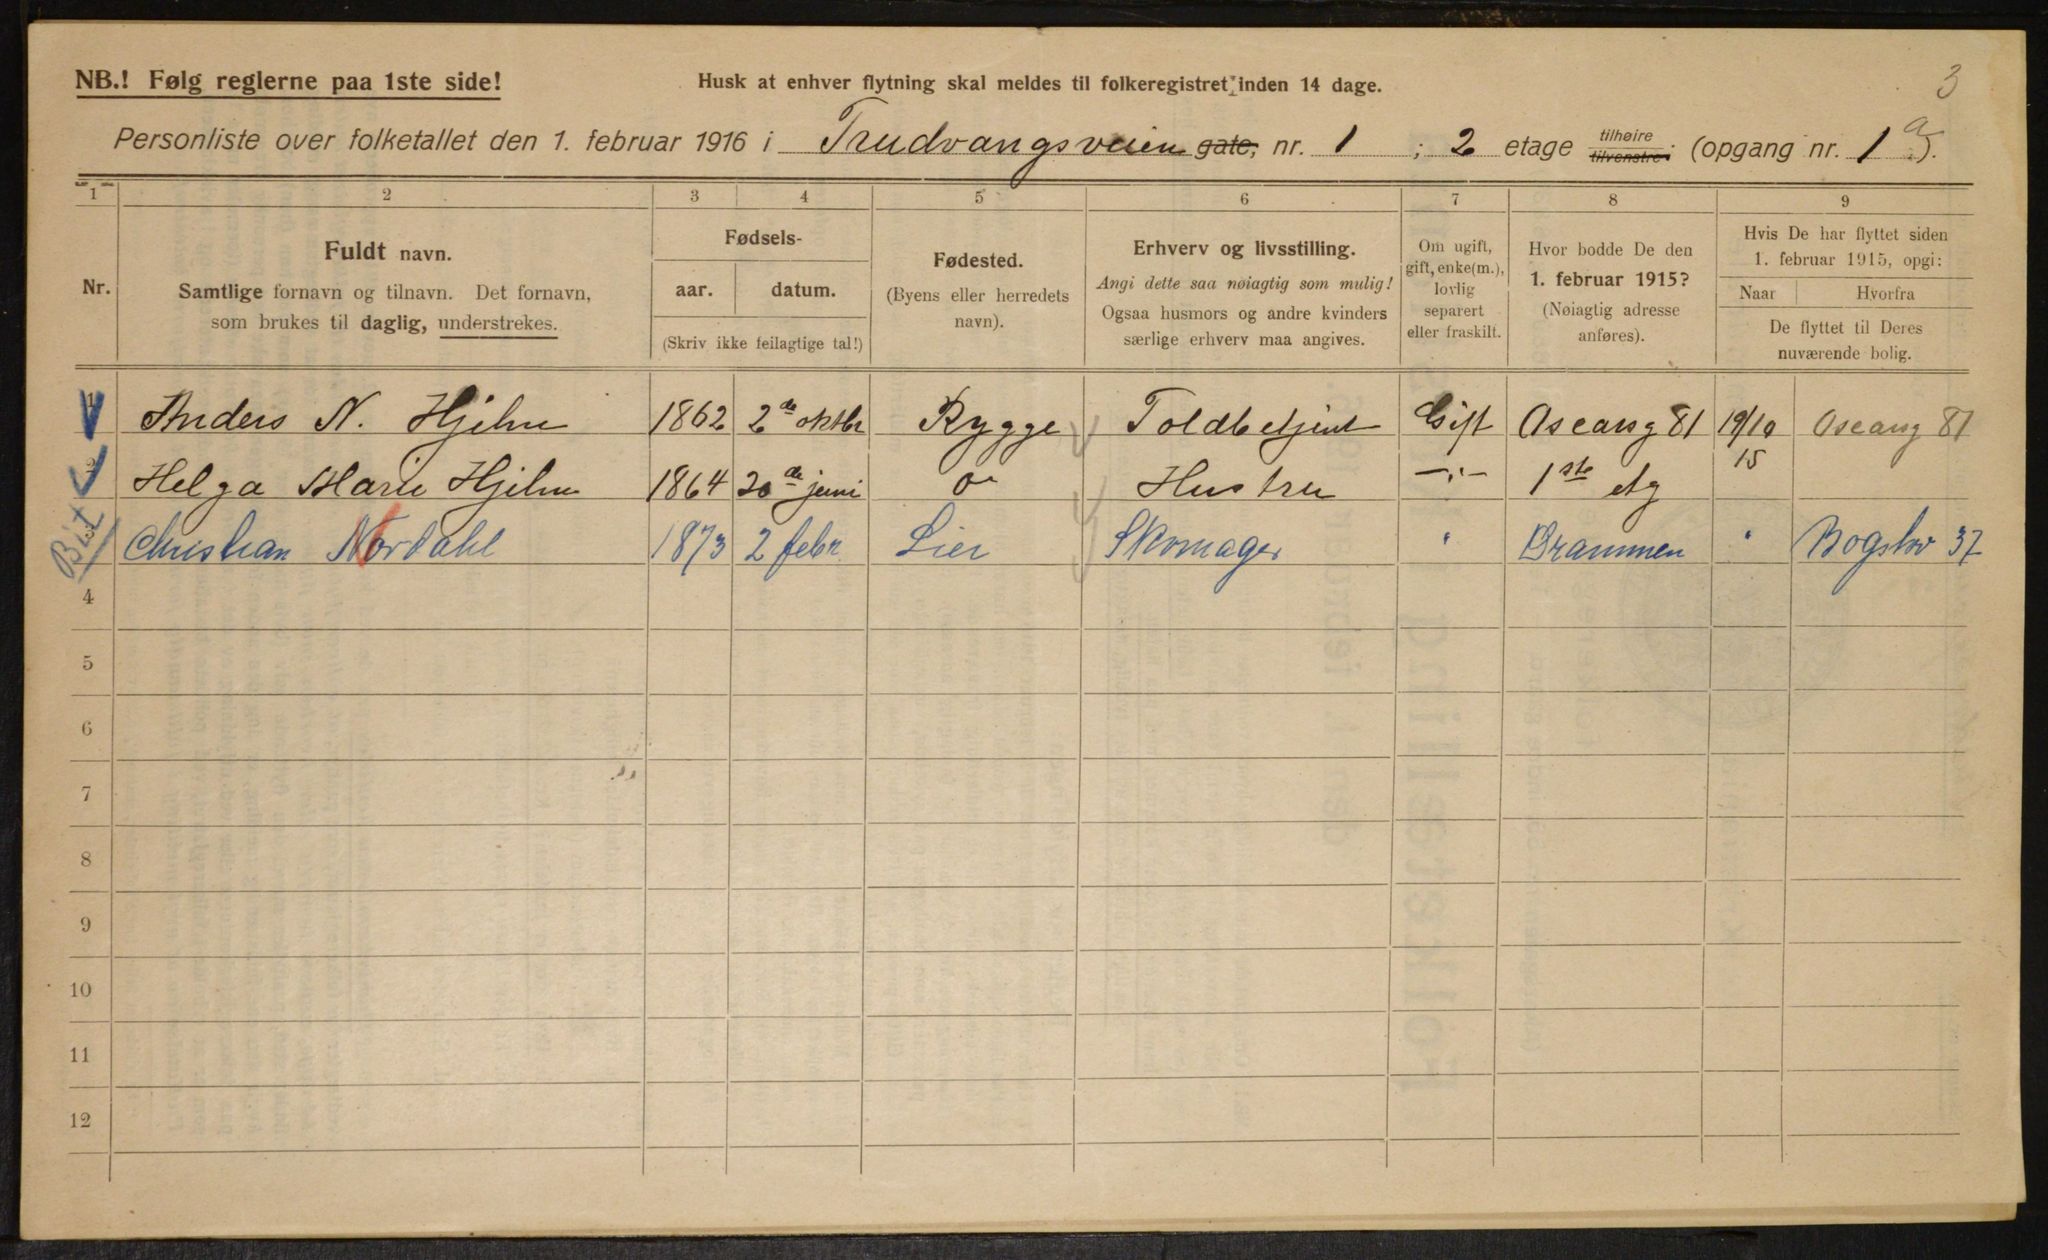 3
NB.! Følg reglerne paa 1ste side! Husk at enhver flytning skal meldes til folkeregistret inden 14 dage.
Personliste over folketallet den 1. februar 1916 i Trudvangsveien gate, nr. 1 ; 2 etage tilhøire tilvenstre; (opgang nr. 1 a).
1 2 3 4 5 6 7 8 9
Nr.
Fuldt navn.
Samtlige fornavn og tilnavn. Det fornavn,
som brukes til daglig, understrekes.
Fødsels-
aar. datum.
(Skriv ikke feilagtige tal!)
Fødested.
(Byens eller herredets
navn).
Erhverv og livsstilling.
Angi dette saa nøiagtig som mulig!
Ogsaa husmors og andre kvinders
særlige erhverv maa angives.
Om ugift,
gift, enke(m.),
lovlig
separert
eller fraskilt.
Hvor bodde De den
1. februar 1915?
(Nøiagtig adresse
anføres).
Hvis De har flyttet siden
1. februar 1915, opgi:
Naar Hvorfra
De flyttet til Deres
nuværende bolig.
1 Anders N. Hjelm 1862 2de oktbr Rygge Toldbetjent Gift Aseang 81 19/10 15 Aseang 81
2 Helga Marie Hjelm 1864 20de juni do Hustru —"— 1ste etg
Christian Nordahl 1873 2 febr. Lier Skomager " Drammen " Bogstvv 37
4
5
6
7
8
9
10
11
12